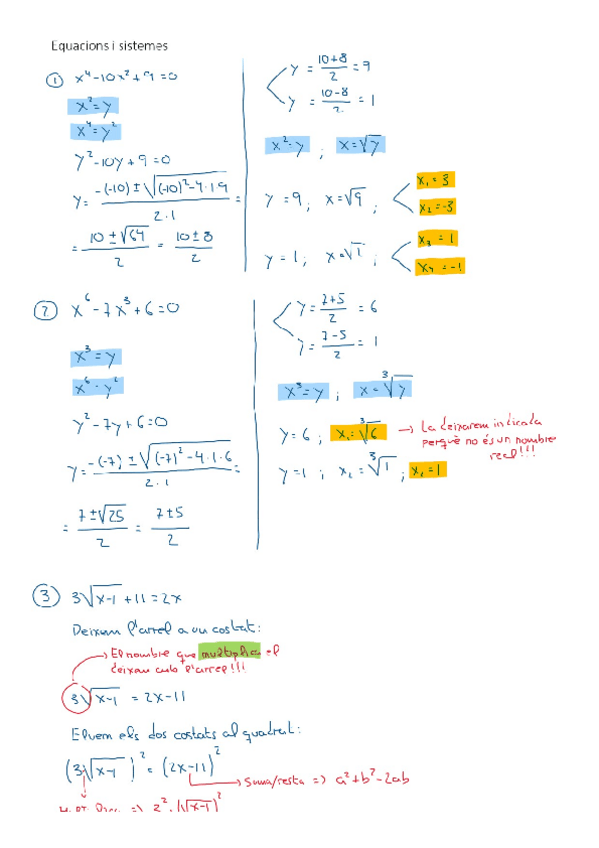 Equacions i sistemes
① x⁴-10x²+9=0
x²=y
x⁴=y²
y²-10y+9=0
y= -(-10)±√((-10)²-4·1·9) / 2·1 =
= 10±√64 / 2 = 10±8 / 2
y = 10+8 / 2 = 9
y = 10-8 / 2 = 1
x²=y ; x=√y
y=9 ; x=√9 ; x₁=3
x₂=-3
y=1 ; x=√1 ; x₃=1
x₄=-1
② x⁶-7x³+6=0
x³=y
x⁶=y²
y²-7y+6=0
y= -(-7)±√((-7)²-4·1·6) / 2·1 =
= 7±√25 / 2 = 7±5 / 2
y= 7+5 / 2 = 6
y= 7-5 / 2 = 1
x³=y ; x=∛y
y=6 ; x₁=∛6 → La deixarem indicada
perquè no és un nombre
real!!!
y=1 ; x₂=∛1 ; x₂=1
③ 3√(x-1)+11=2x
Deixem l'arrel a un costat:
→ El nombre que multiplica el
deixem amb l'arrel!!!
3√(x-1) = 2x-11
Elevem els dos costats al quadrat:
(3√(x-1))² = (2x-11)²
→ Suma/resta => a²+b²-2ab
=> 2² · (√(x-1))²